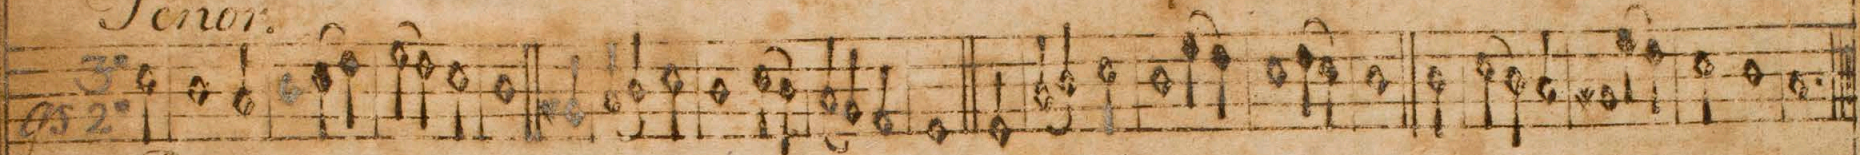 Tenor.
3
2